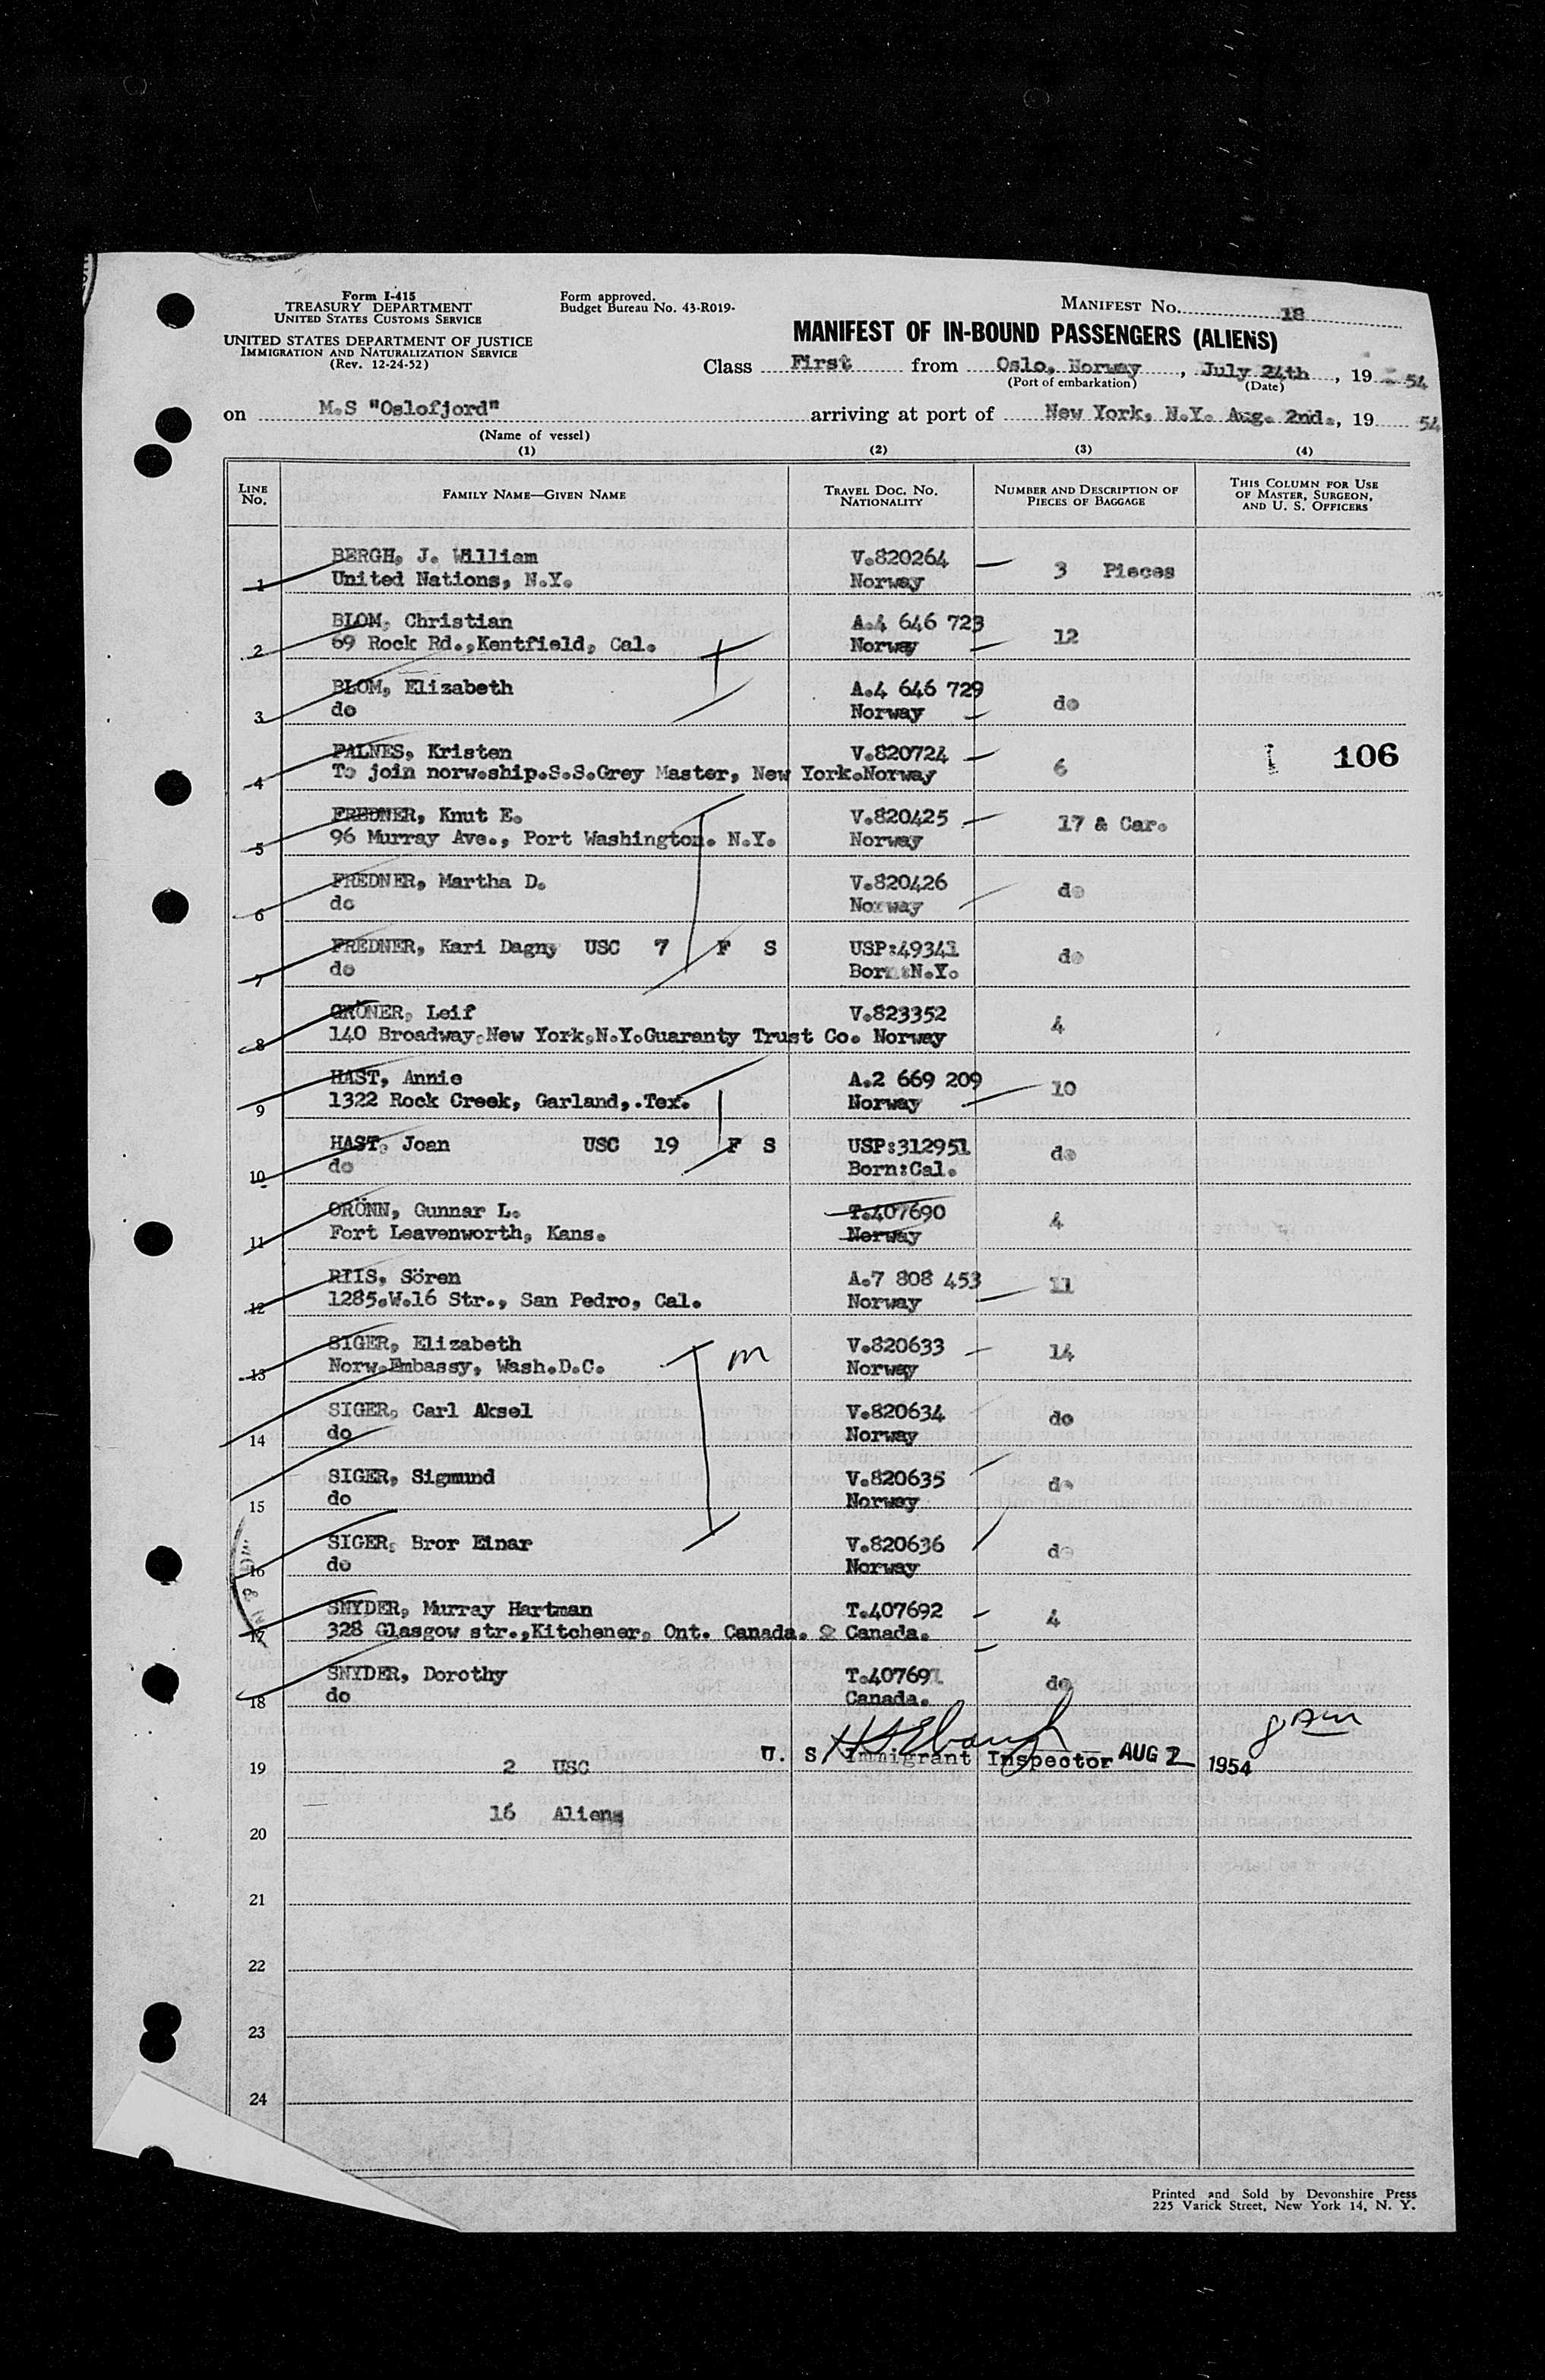 Form I-415
TREASURY DEPARTMENT
UNITED STATES CUSTOMS SERVICE
UNITED STATES DEPARTMENT OF JUSTICE
IMMIGRATION AND NATURALIZATION SERVICE
(Rev. 12-24-52)
Form approved.
Budget Bureau No. 43-R019-
MANIFEST No. 18
MANIFEST OF IN-BOUND PASSENGERS (ALIENS)
Class First from Oslo, Norway, July 24th, 19 54
(Port of embarkation) (Date)
on M.S "Oslofjord" arriving at port of New York, N.Y. Aug. 2nd., 19 54
(Name of vessel)
(1) (2) (3) (4)
LINE No. FAMILY NAME—GIVEN NAME TRAVEL DOC. NO. NATIONALITY NUMBER AND DESCRIPTION OF PIECES OF BAGGAGE THIS COLUMN FOR USE OF MASTER, SURGEON, AND U. S. OFFICERS
BERGH, J. William V.820264 3 Pieces
1 United Nations, N.Y. Norway
BLOM, Christian A.4 646 723 12
2 69 Rock Rd.,Kentfield, Cal. Norway
BLOM, Elizabeth A.4 646 729 do
3 do Norway
FALNES, Kristen V.820724 6 106
4 To join norw.ship.S.S.Grey Master, New York.Norway
FREDNER, Knut E. V.820425 17 & Car.
5 96 Murray Ave., Port Washington. N.Y. Norway
FREDNER, Martha D. V.820426 do
6 do Norway
FREDNER, Kari Dagny USC 7 F S USP:49341 do
7 do Born:N.Y.
GRÖNER, Leif V.823352 4
8 140 Broadway,New York,N.Y.Guaranty Trust Co. Norway
HAST, Annie A.2 669 209 10
9 1322 Rock Creek, Garland,.Tex. Norway
HAST, Joan USC 19 F S USP:312951 do
10 do Born:Cal.
GRÖNN, Gunnar L. T.407690 4
11 Fort Leavenworth, Kans. Norway
RIIS, Sören A.7 808 453 11
12 1285.W.16 Str., San Pedro, Cal. Norway
SIGER, Elizabeth m V.820633 14
13 Norw.Embassy, Wash.D.C. Norway
SIGER, Carl Aksel V.820634 do
14 do Norway
SIGER, Sigmund V.820635 do
15 do Norway
SIGER, Bror Einar V.820636 do
16 do Norway
SNYDER, Murray Hartman T.407692 4
17 328 Glasgow str.,Kitchener, Ont. Canada. Canada.
SNYDER, Dorothy T.407691 do
18 do Canada.
19 2 USC U. S. Immigrant Inspector AUG 2 1954
16 Aliens
20
21
22
23
24
Printed and Sold by Devonshire Press
225 Varick Street, New York 14, N. Y.